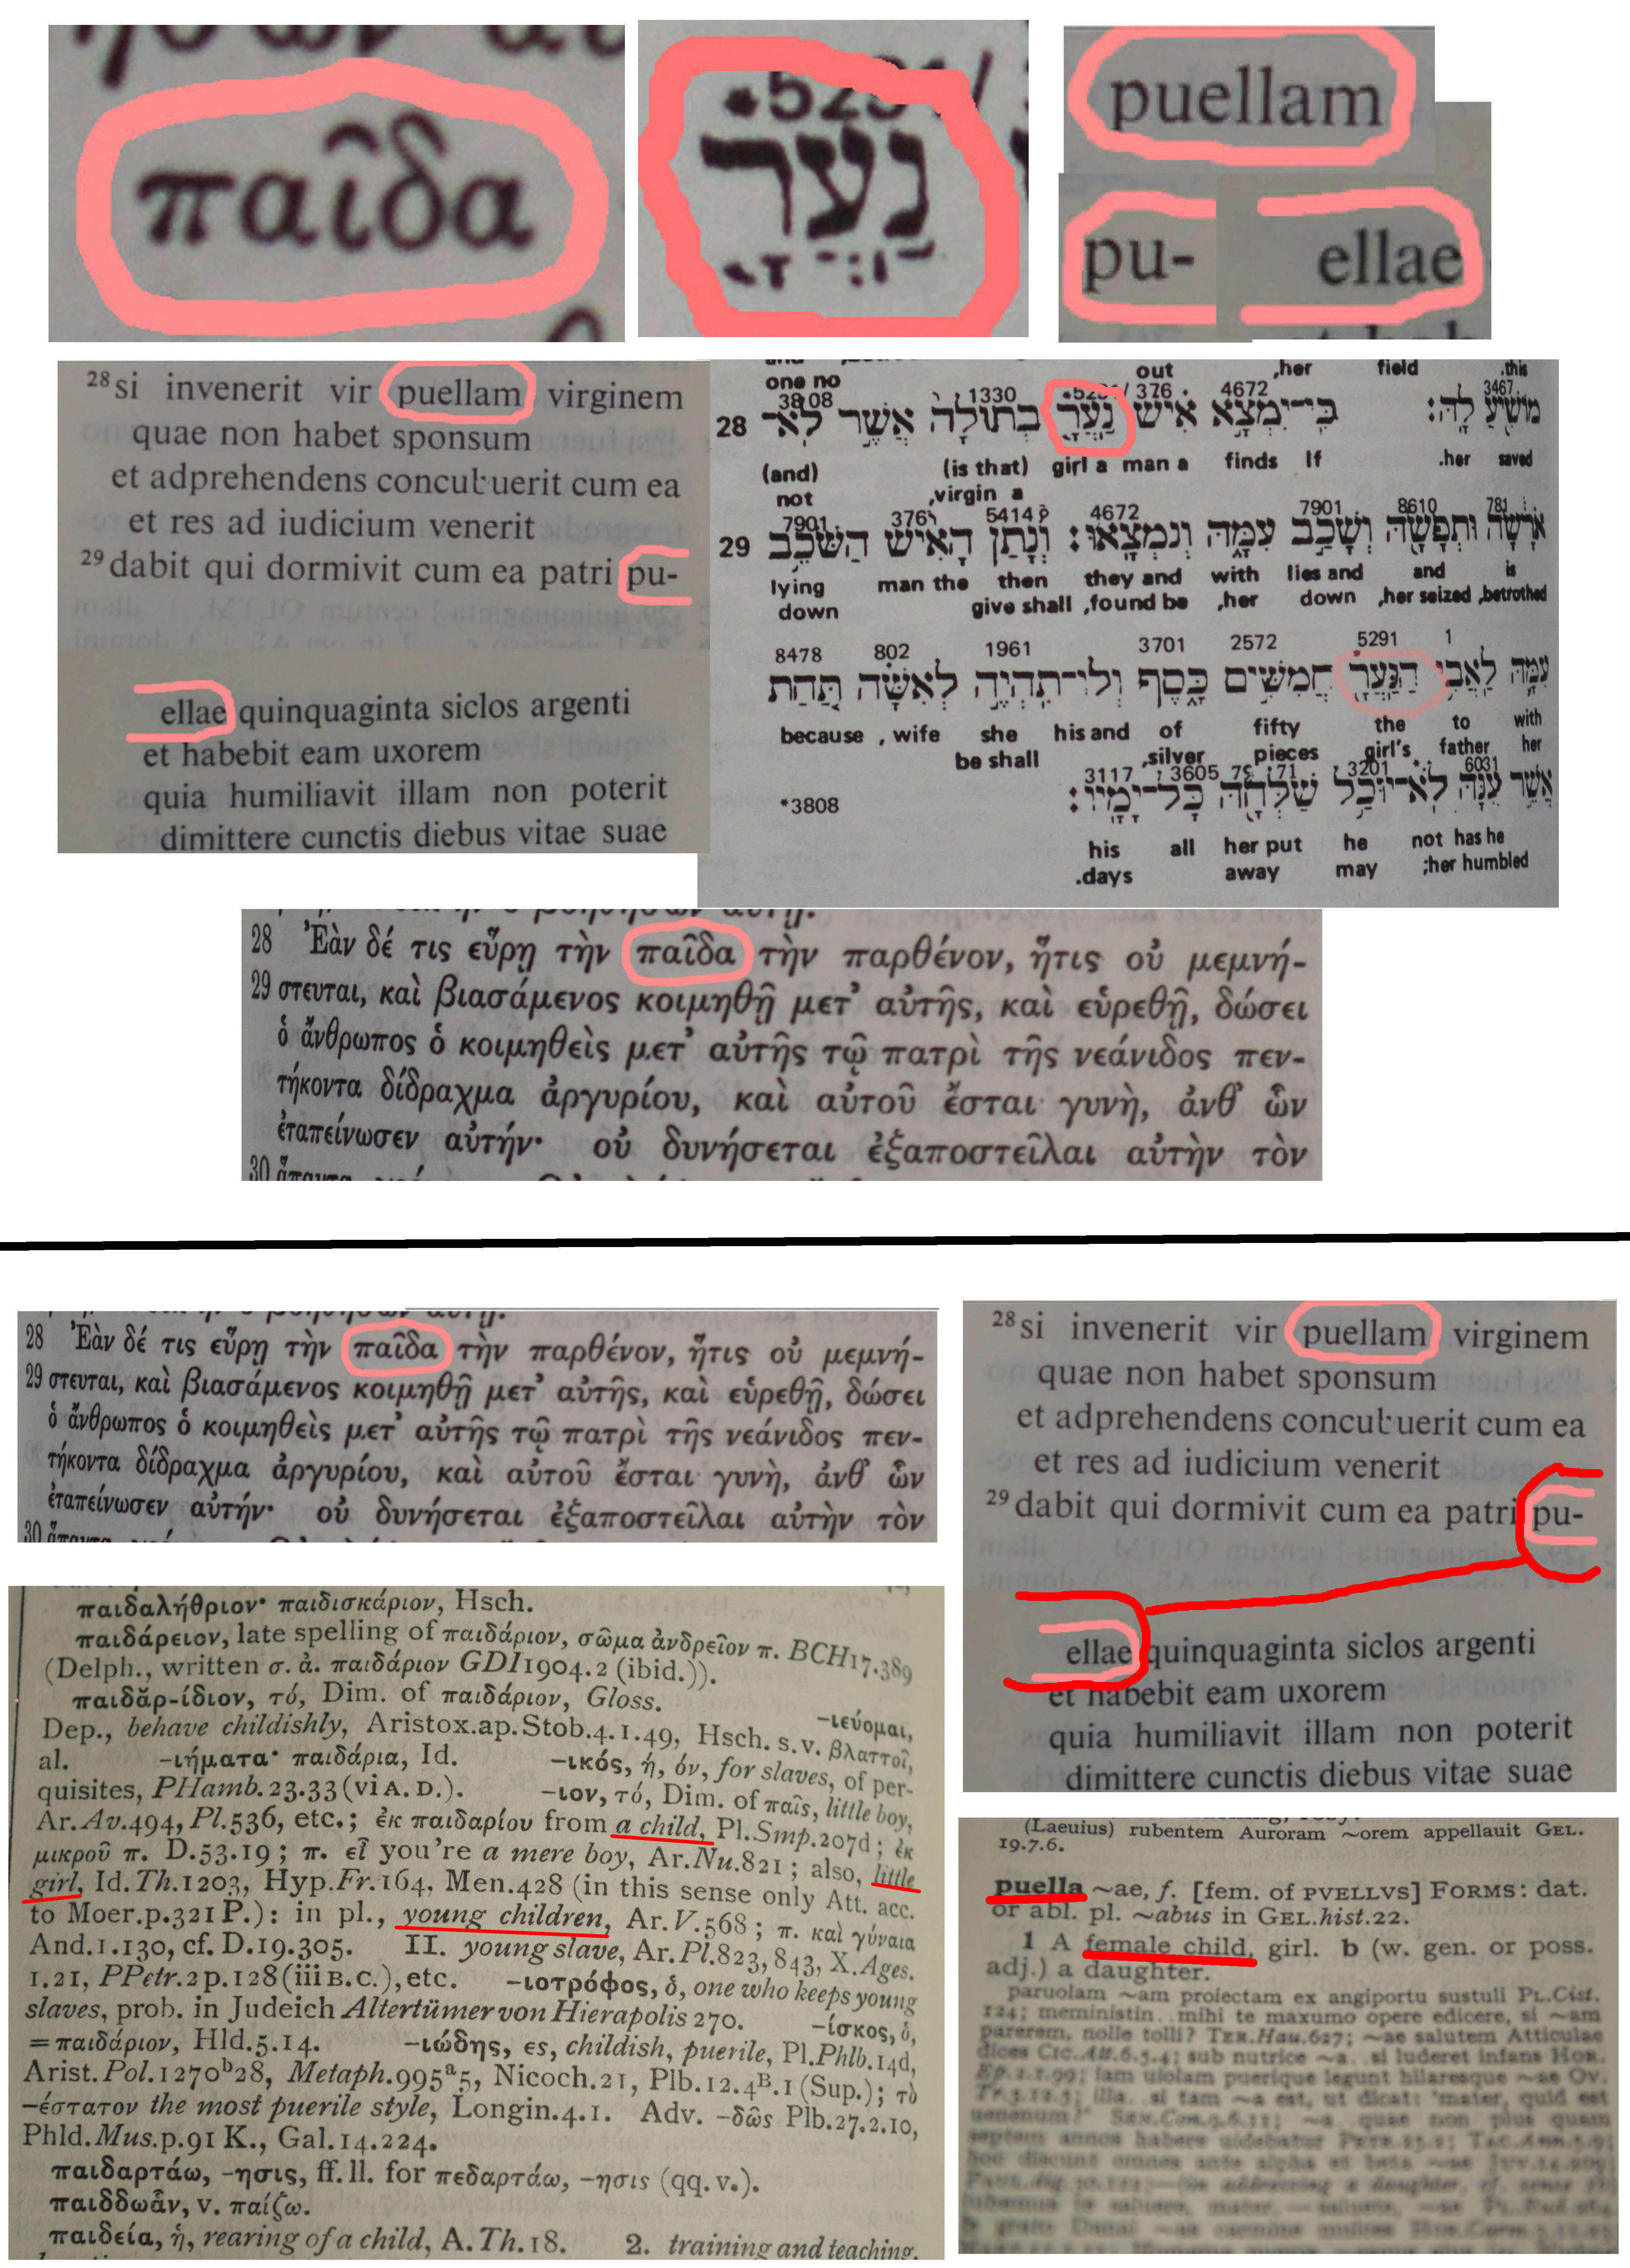 παῖδα
נַעֲרָ
puellam
pu-
ellae
28 si invenerit vir puellam virginem
quae non habet sponsum
et adprehendens concubuerit cum ea
et res ad iudicium venerit
29 dabit qui dormivit cum ea patri pu-
ellae quinquaginta siclos argenti
et habebit eam uxorem
quia humiliavit illam non poterit
dimittere cunctis diebus vitae suae
one no out ,her field .this
3808 1330 376 4672 3467
28 מוֹשִׁיעַ לָהּ׃ כִּי־יִמְצָא אִישׁ נַעֲרָ בְתוּלָה אֲשֶׁר לֹא־
(and) (is that) girl a man a finds If .her saved
not ,virgin a
7901 376 5414 4672 7901 8610 781
29 אֹרָשָׂה וּתְפָשָׂהּ וְשָׁכַב עִמָּהּ וְנִמְצָאוּ׃ וְנָתַן הָאִישׁ הַשֹּׁכֵב
lying man the then they and with lies and and is
down give shall ,found be ,her down ,her seized ,betrothed
8478 802 1961 3701 2572 5291 1
עִמָּהּ לַאֲבִי הַנַּעֲרָ חֲמִשִּׁים כָּסֶף וְלוֹ־תִהְיֶה לְאִשָּׁה תַּחַת
because , wife she his and of fifty the to with
be shall ,silver pieces girl's father her
3117 3605 7971 3201 6031
*3808 אֲשֶׁר עִנָּהּ לֹא־יוּכַל שַׁלְּחָהּ כָּל־יָמָיו׃
his all her put he not has he
.days away may ;her humbled
28 Ἐὰν δέ τις εὕρῃ τὴν παῖδα τὴν παρθένον, ἥτις οὐ μεμνή-
29 στευται, καὶ βιασάμενος κοιμηθῇ μετ' αὐτῆς, καὶ εὑρεθῇ, δώσει
ὁ ἄνθρωπος ὁ κοιμηθεὶς μετ' αὐτῆς τῷ πατρὶ τῆς νεάνιδος πεν-
τήκοντα δίδραχμα ἀργυρίου, καὶ αὐτοῦ ἔσται γυνὴ, ἀνθ' ὧν
ἐταπείνωσεν αὐτήν· οὐ δυνήσεται ἐξαποστεῖλαι αὐτὴν τὸν
30
28 Ἐὰν δέ τις εὕρῃ τὴν παῖδα τὴν παρθένον, ἥτις οὐ μεμνή-
29 στευται, καὶ βιασάμενος κοιμηθῇ μετ' αὐτῆς, καὶ εὑρεθῇ, δώσει
ὁ ἄνθρωπος ὁ κοιμηθεὶς μετ' αὐτῆς τῷ πατρὶ τῆς νεάνιδος πεν-
τήκοντα δίδραχμα ἀργυρίου, καὶ αὐτοῦ ἔσται γυνὴ, ἀνθ' ὧν
ἐταπείνωσεν αὐτήν· οὐ δυνήσεται ἐξαποστεῖλαι αὐτὴν τὸν
30
28 si invenerit vir puellam virginem
quae non habet sponsum
et adprehendens concubuerit cum ea
et res ad iudicium venerit
29 dabit qui dormivit cum ea patri pu-
ellae quinquaginta siclos argenti
et habebit eam uxorem
quia humiliavit illam non poterit
dimittere cunctis diebus vitae suae
παιδαλήθριον· παιδισκάριον, Hsch.
παιδάρειον, late spelling of παιδάριον, σῶμα ἀνδρεῖον π. BCH17.389
(Delph., written σ. ἀ. παιδάριον GDI1904.2 (ibid.)).
παιδᾰρ-ίδιον, τό, Dim. of παιδάριον, Gloss. -ιεύομαι,
Dep., behave childishly, Aristox.ap.Stob.4.1.49, Hsch. s.v. βλαττοῖ,
al. -ιήματα· παιδάρια, Id. -ικός, ή, όν, for slaves, of per-
quisites, PHamb.23.33 (vi A. D.). -ιον, τό, Dim. of παῖς, little boy,
Ar.Av.494, Pl.536, etc.; ἐκ παιδαρίου from a child, Pl.Smp.207d; ἐκ
μικροῦ π. D.53.19; π. εἶ you're a mere boy, Ar.Nu.821; also, little
girl, Id.Th.1203, Hyp.Fr.164, Men.428 (in this sense only Att. acc.
to Moer.p.321 P.): in pl., young children, Ar.V.568; π. καὶ γύναια
And.1.130, cf. D.19.305. II. young slave, Ar.Pl.823, 843, X.Ages.
1.21, PPetr.2p.128 (iii B.C.), etc. -ιοτρόφος, ὁ, one who keeps young
slaves, prob. in Judeich Altertümer von Hierapolis 270. -ίσκος, ὁ,
= παιδάριον, Hld.5.14. -ιώδης, ες, childish, puerile, Pl.Phlb.14d,
Arist.Pol.1270b28, Metaph.995a5, Nicoch.21, Plb.12.4B.1 (Sup.); τὸ
-έστατον the most puerile style, Longin.4.1. Adv. -δῶς Plb.27.2.10,
Phld.Mus.p.91 K., Gal.14.224.
παιδαρτάω, -ησις, ff. ll. for πεδαρτάω, -ησις (qq. v.).
παιδδωἇν, v. παίζω.
παιδεία, ἡ, rearing of a child, A.Th.18. 2. training and teaching,
(Laeuius) rubentem Auroram ~orem appellauit GEL.
19.7.6.
puella ~ae, f. [fem. of PVELLVS] FORMS: dat.
or abl. pl. ~abus in GEL.hist.22.
1 A female child, girl. b (w. gen. or poss.
adj.) a daughter.
paruolam ~am proiectam ex angiportu sustuli PL.Cist.
124; meministin.. mihi te maxumo opere edicere, si ~am
parerem, nolle tolli? TER.Hau.627; ~ae salutem Atticulae
dices CIC.Att.6.5.4; sub nutrice ~a.. si luderet infans HOR.